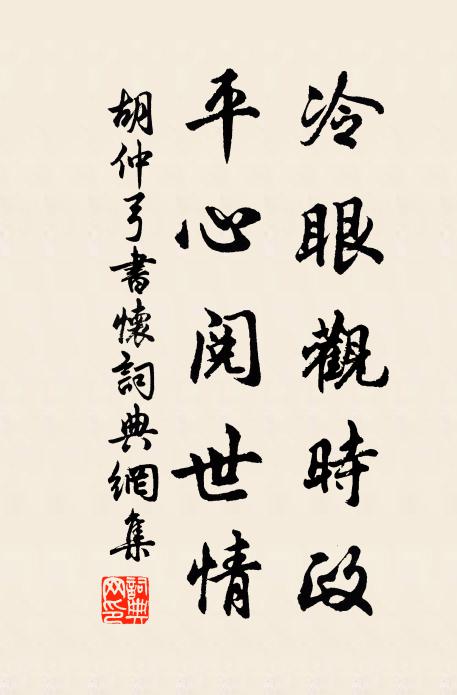 冷眼觀時政
平心閱世情
胡仲弓書懷詞典網集
詞典网印